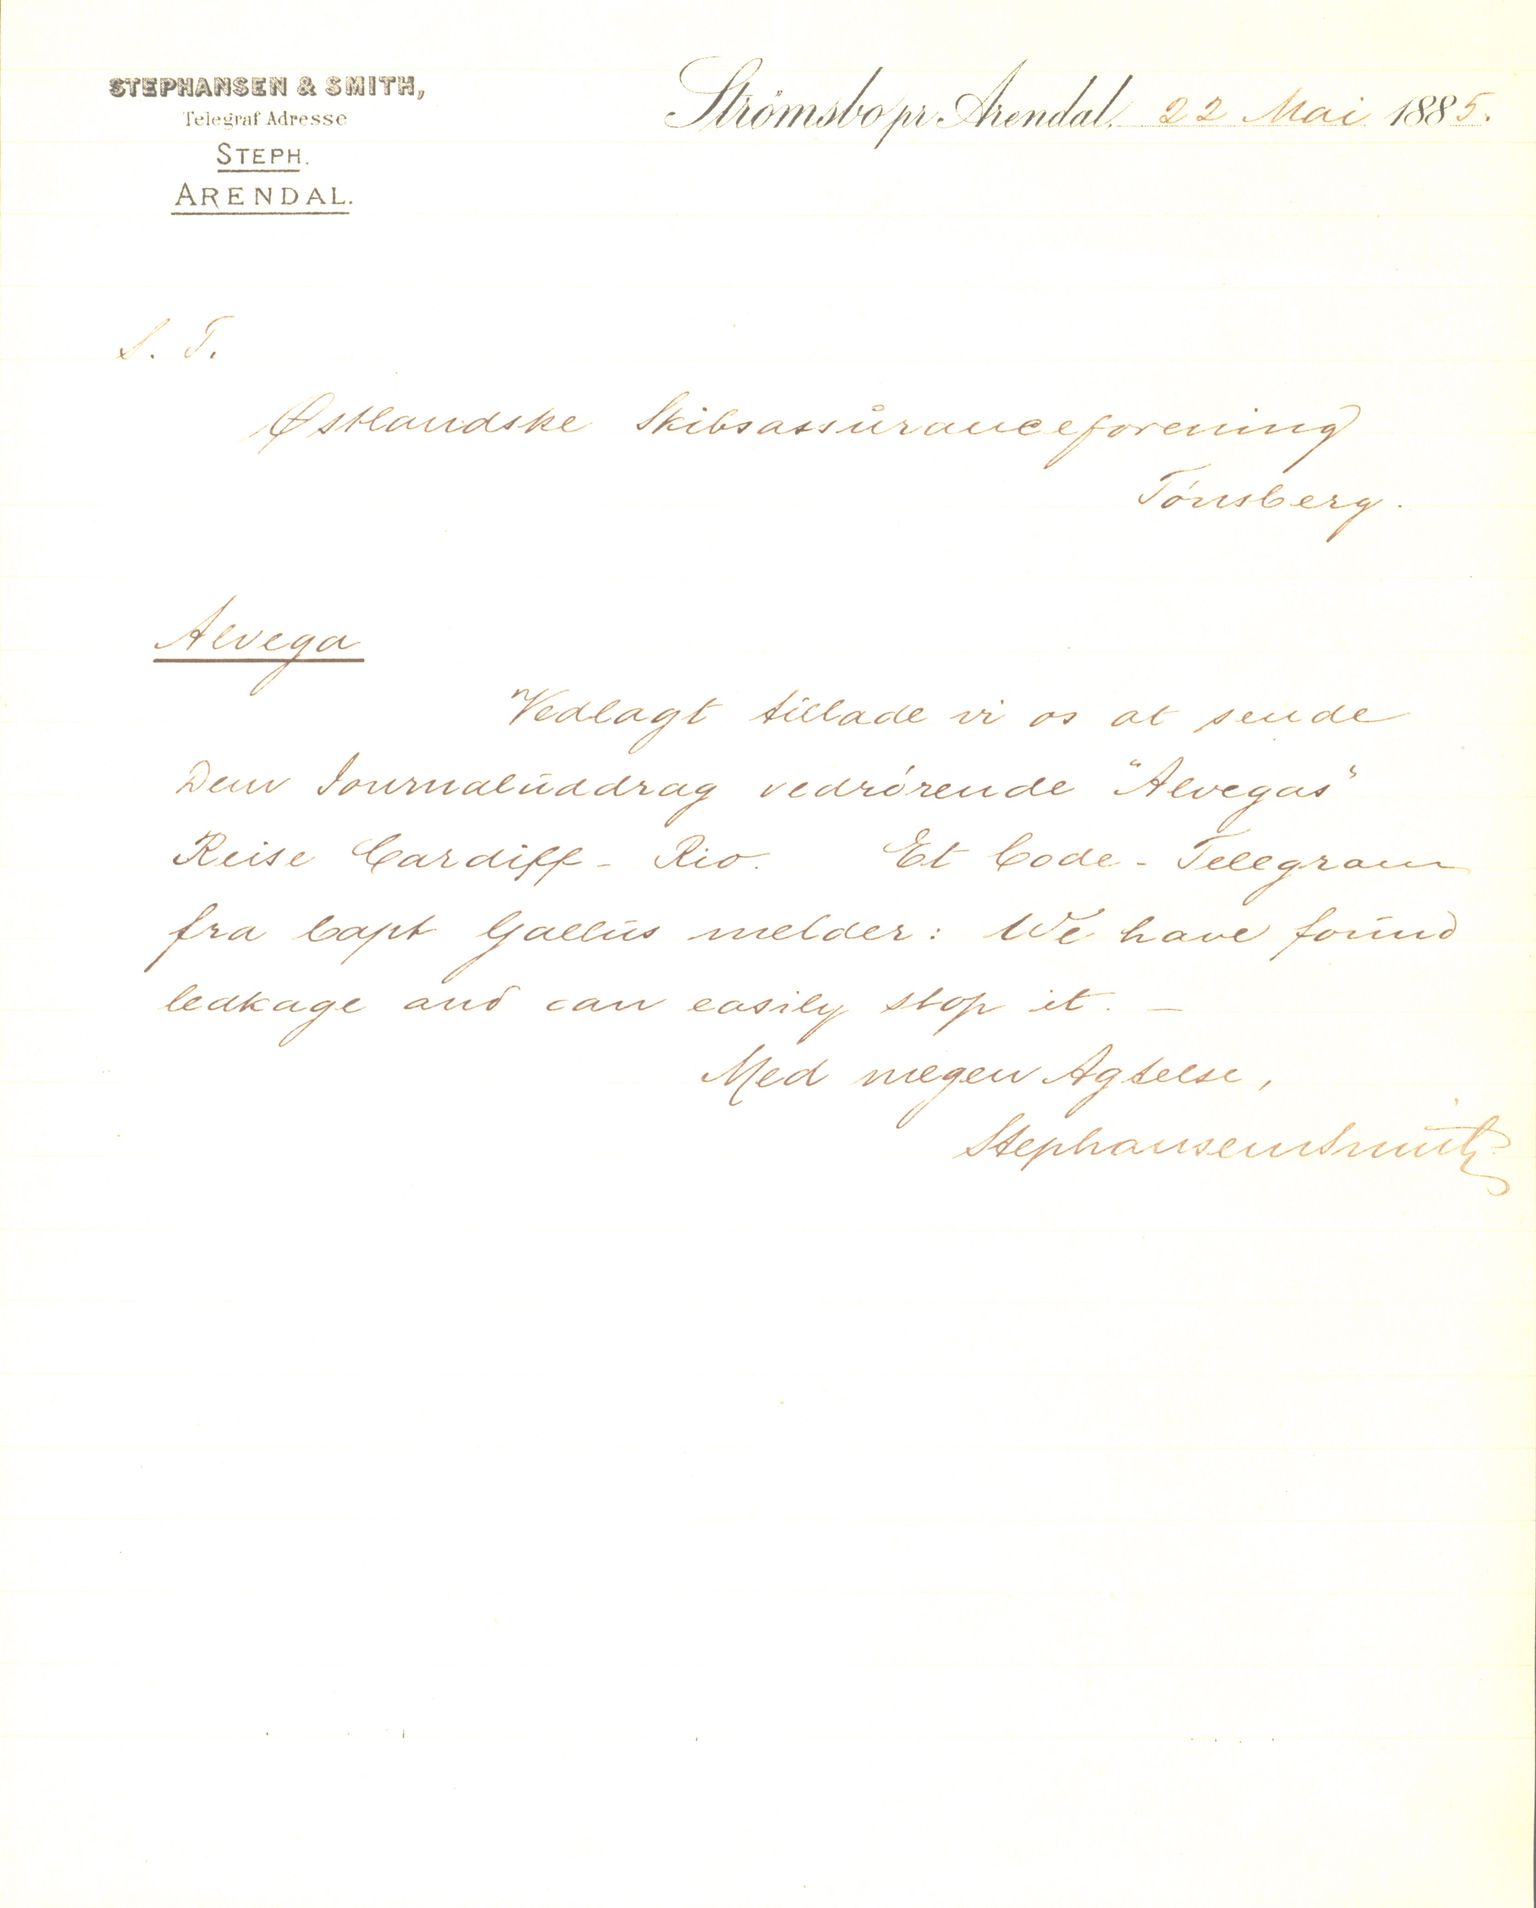 STEPHANSEN & SMITH,
Telegraf Adresse
STEPH.
ARENDAL.
Strömsbo pr Arendal, 22 Mai 1885.
S. T.
Østlandske Skibsassuranceforening
Tønsberg.
Alvega
Vedlagt tillade vi os at sende
Dem Journaluddrag vedrørende "Alvegas"
Reise Cardiff - Rio. Et Code-Telegram
fra Capt Gallus melder: We have found
leakage and can easily stop it. -
Med megen Agtelse,
Stephansen Smith